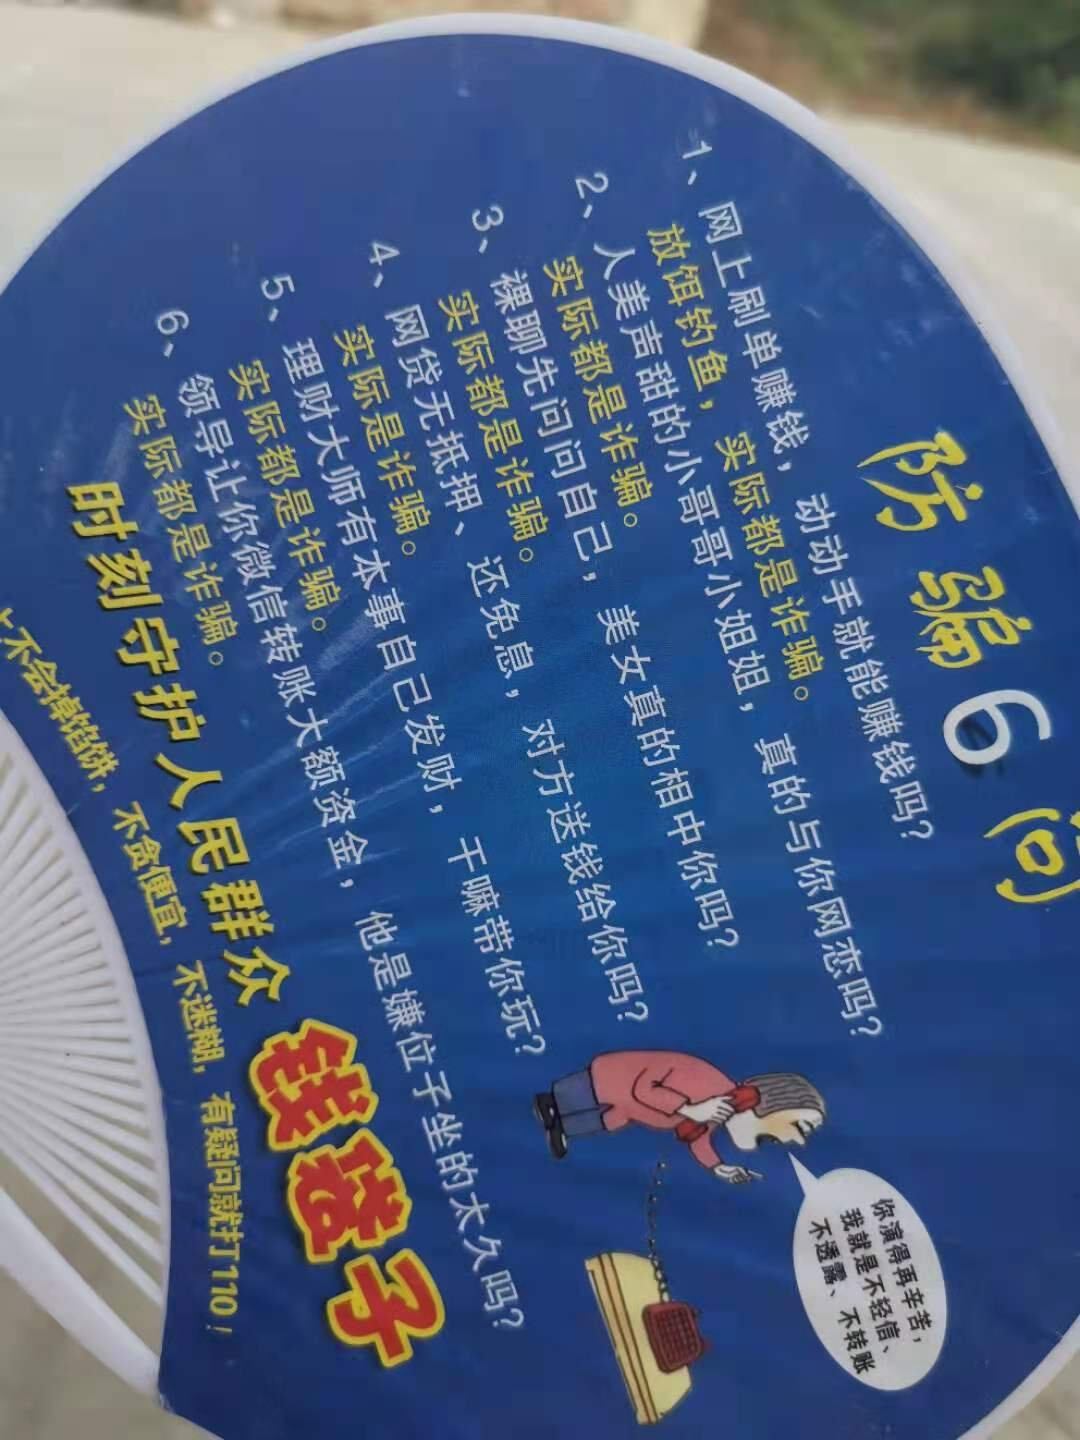 防骗6问
1、网上刷单赚钱，动动手就能赚钱吗？
放饵钓鱼，实际都是诈骗。
2、人美声甜的小哥哥小姐姐，真的与你网恋吗？
实际都是诈骗。
3、裸聊先问问自己，美女真的相中你吗？
实际都是诈骗。
4、网贷无抵押、还免息，对方送钱给你吗？
实际是诈骗。
5、理财大师有本事自己发财，干嘛带你玩？
实际都是诈骗。
6、领导让你微信转账大额资金，他是嫌位子坐的太久吗？
实际都是诈骗。
时刻守护人民群众钱袋子
上不会掉馅饼，不贪便宜，不迷糊，有疑问就打110！
你演得再辛苦，
我就是不轻信、
不透露、不转账